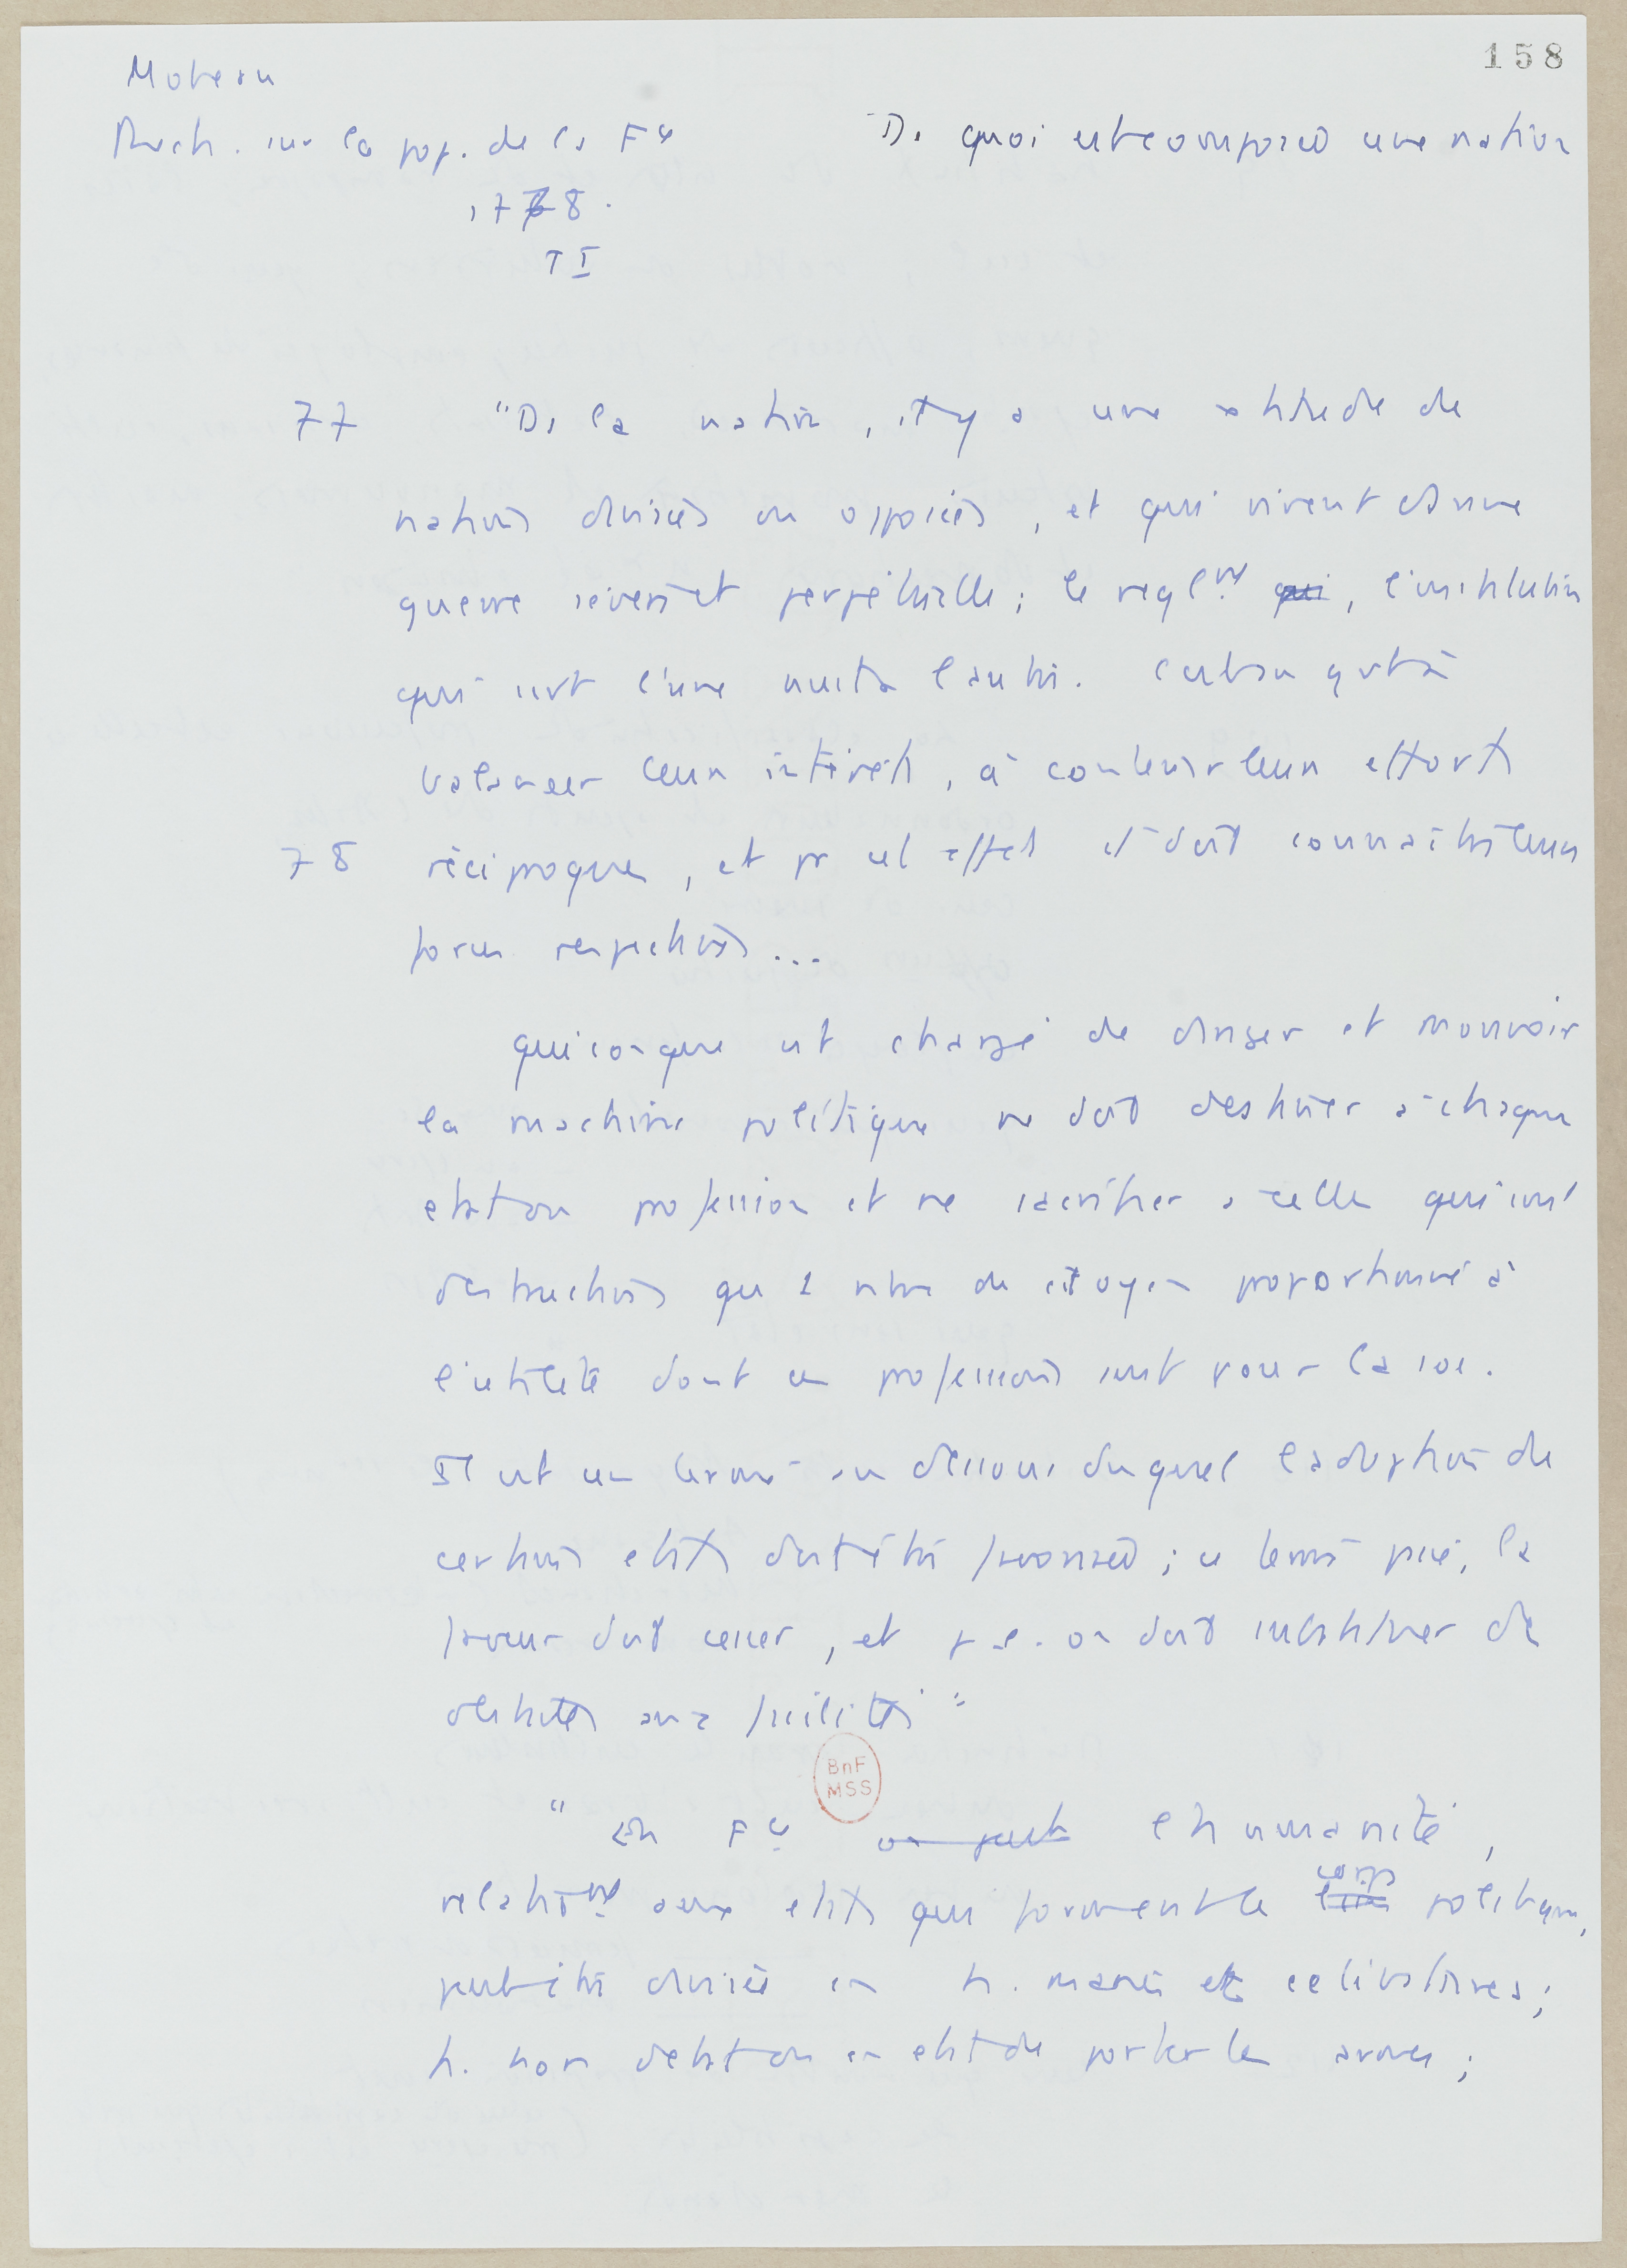 158
Moheau
Rech. sur la pop. de la Fce
De quoi est composée une nation
1778.
T I
77 "Ds la nation, il y a une multitude de
nations divisées ou opposées, et qui vivent ds une
guerre secrète et perpétuelle ; le reglmt qui, l'institution
qui sert l'une nuit à l'autre.
balancer leurs intérêts, à contenir leurs efforts
78 réciproques, et pr cet effet il doit connaître leurs
forces respectives...
quiconque est chargé de diriger et mouvoir
la machine politique ne doit destiner à chaque
état ou profession et ne sacrifier à celles qui sont
destructives qu'1 nbre de citoyens proportionné à
l'utilité dont ces professions sont pour la soc.
Il est un terme au dessous duquel l'adoption de
certains états doit être favorisée ; ce terme passé, la
faveur doit cesser, et p.e. on doit substituer des
obstacles aux facilités"
BnF
MSS
"En Fce on peut l'humanité,
relativmt aux états qui forment le corps politique,
peut être divisée en h. mariés et célibataires ;
h. hors d'état ou en état de porter les armes ;